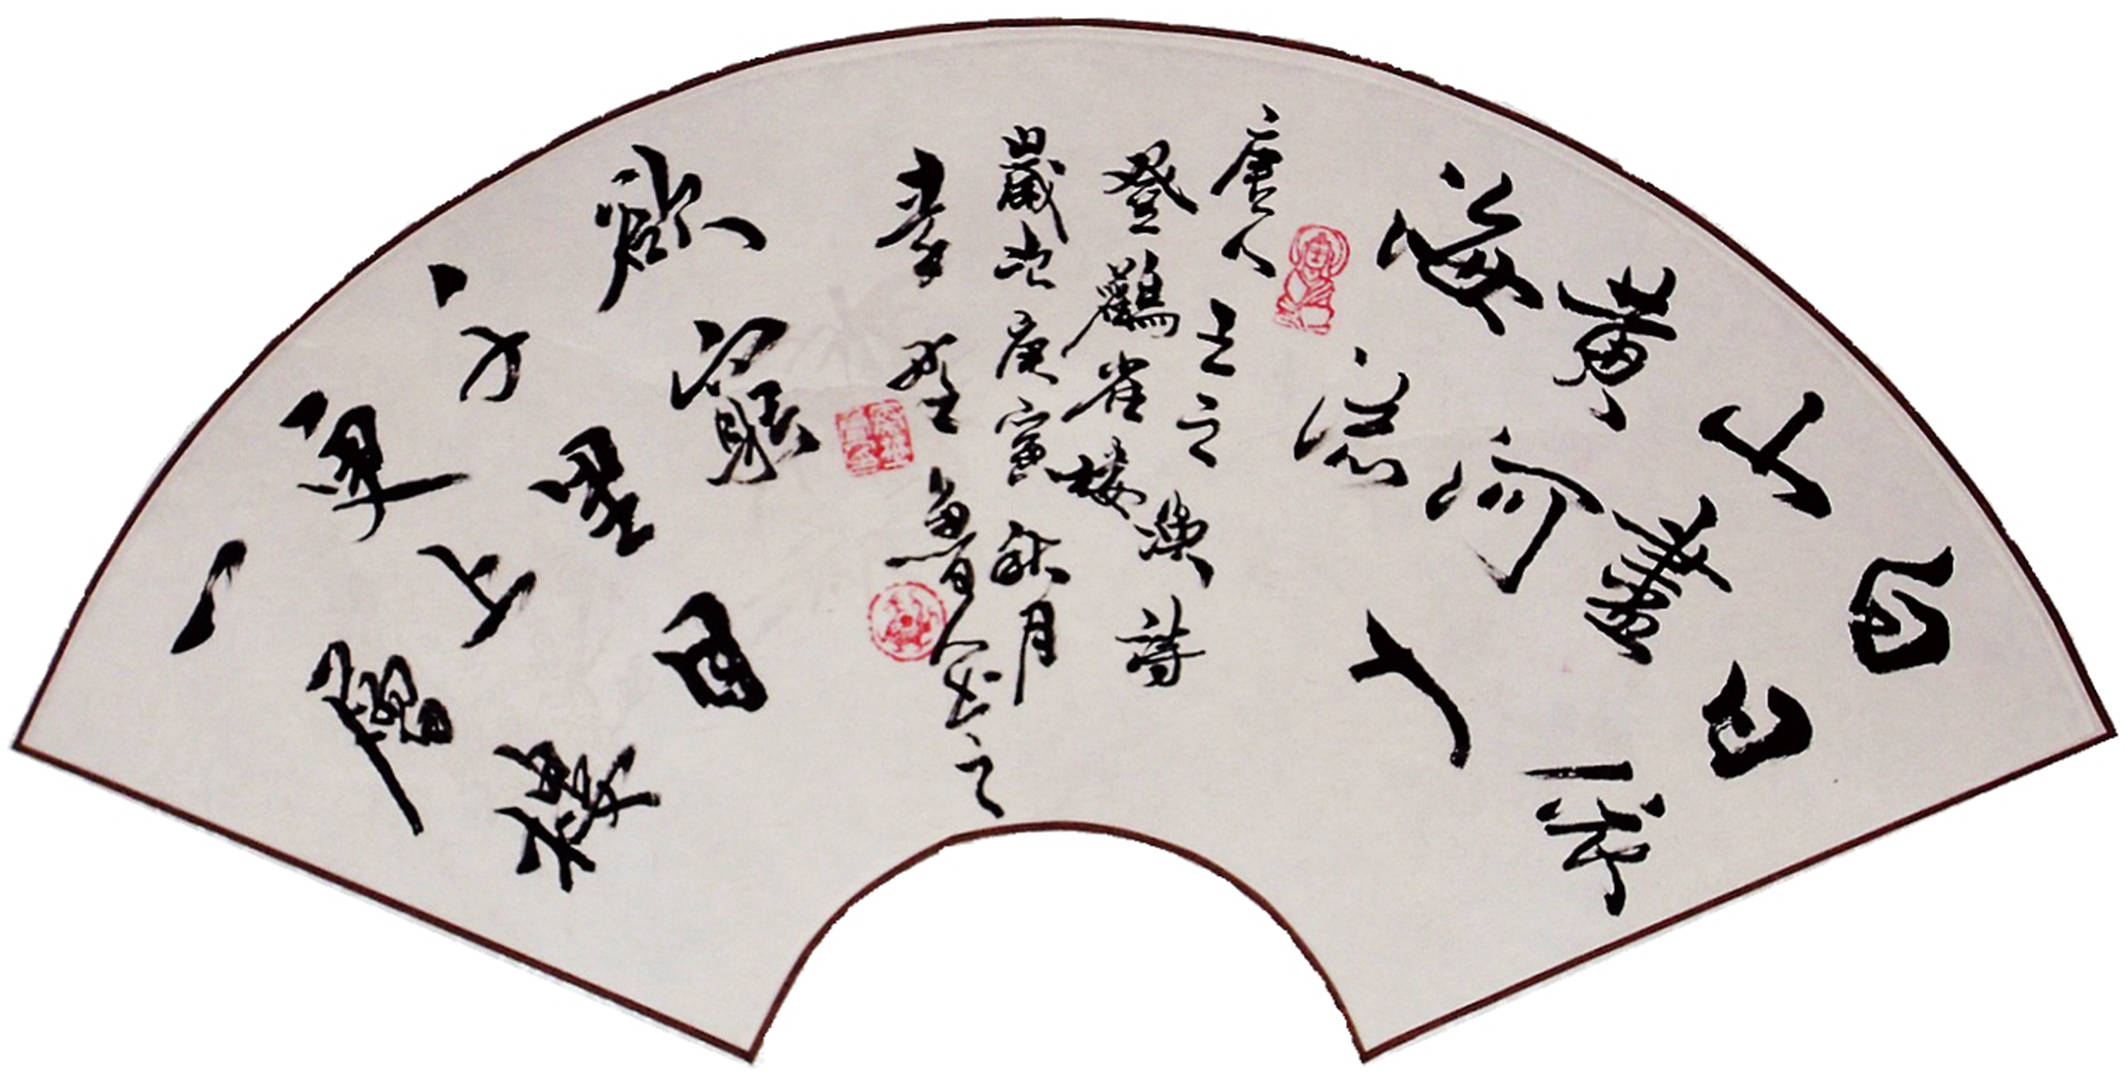 白日依
山盡
黄河入
海流
唐人王之渙詩
登鸛雀楼
歲次庚寅秋月
李 魯 之
欲窮目
千里
更上
一層樓